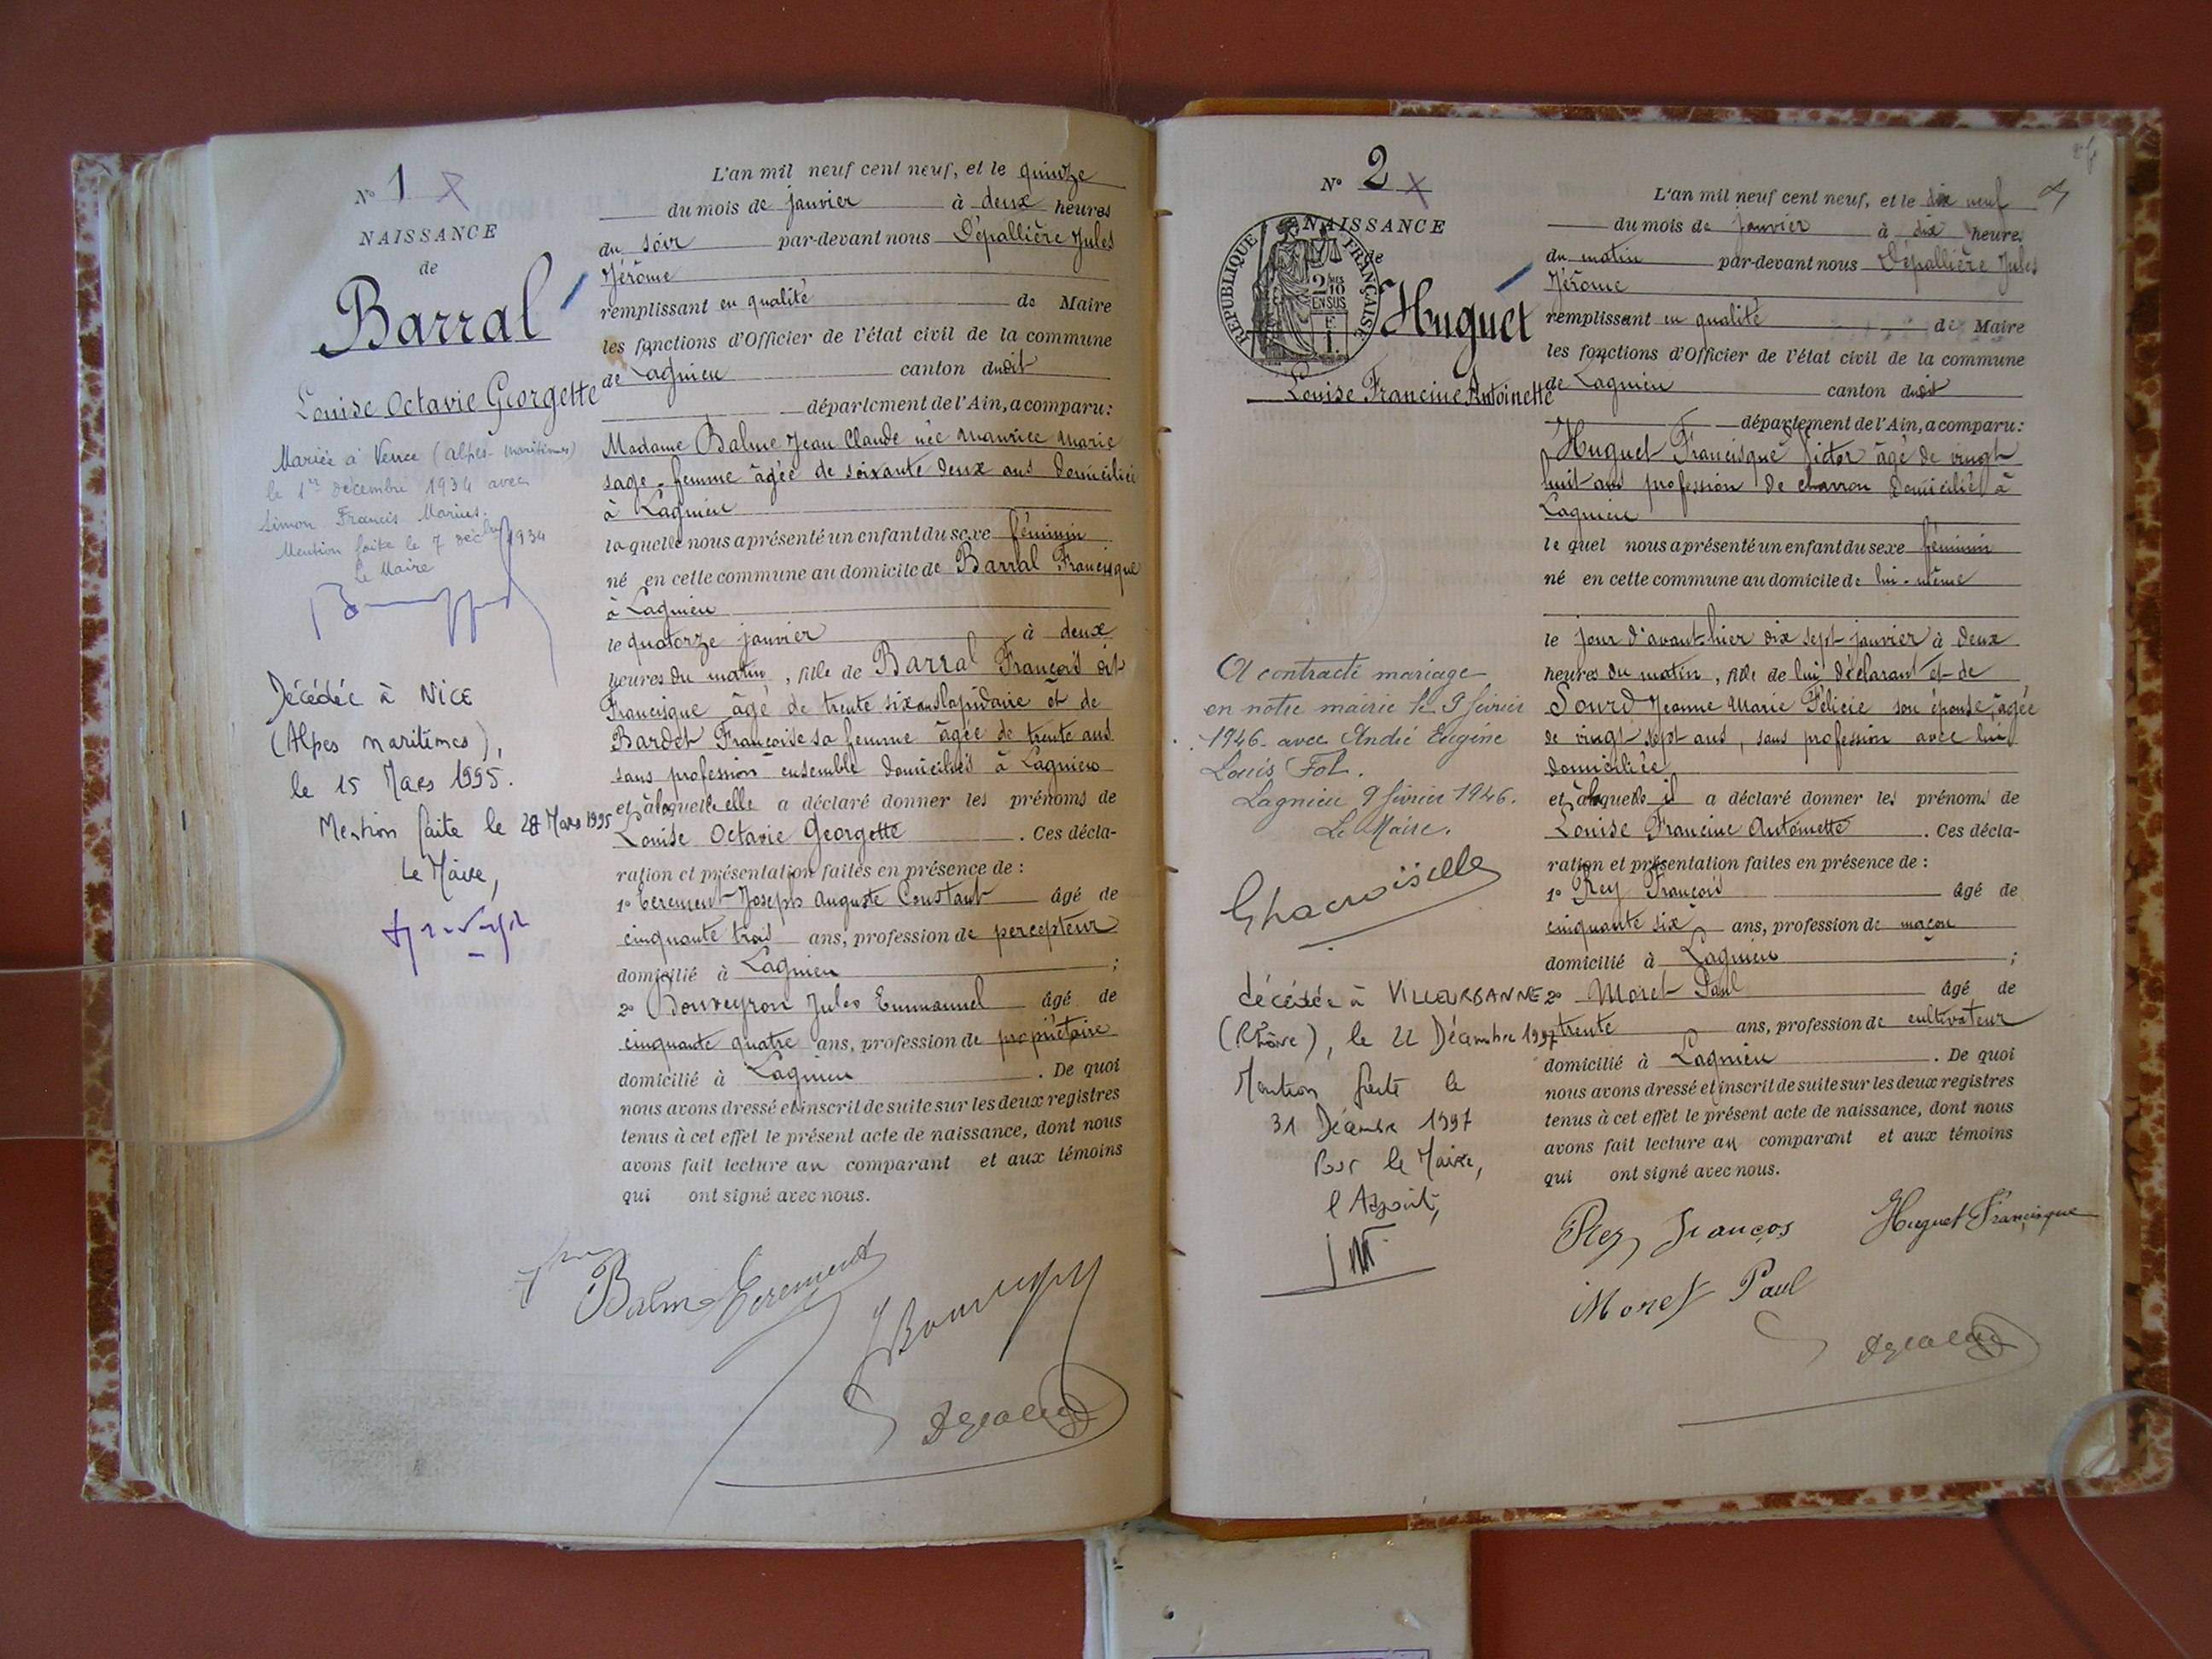 N° 1
NAISSANCE
de
Barral
Louise Octavie Georgette
Mariée à Vence (Alpes-Maritimes)
le 1er décembre 1934 avec
Simon Francis Marius.
Mention faite le 7 décbre 1934
Le Maire
Décédée à NICE
(Alpes Maritimes),
le 15 Mars 1995.
Mention faite le 28 Mars 1995
Le Maire,
L'an mil neuf cent neuf, et le quinze
du mois de janvier à deux heures
du soir par-devant nous Dépallière Jules
Jérôme
remplissant en qualité de Maire
les fonctions d'Officier de l'état civil de la commune
de Lagnieu canton dudit
département de l'Ain, a comparu:
Madame Balme Jean Claude née Maurice Marie
sage-femme âgée de soixante deux ans domiciliée
à Lagnieu
laquelle nous a présenté un enfant du sexe féminin
né en cette commune au domicile de Barral Francisque
à Lagnieu
le quatorze janvier à deux
heures du matin, fille de Barral François dit
Francisque âgé de trente six ans lapidaire et de
Bardet Françoise sa femme âgée de trente ans
sans profession ensemble domiciliés à Lagnieu
et à laquelle elle a déclaré donner les prénoms de
Louise Octavie Georgette. Ces décla-
ration et présentation faites en présence de:
1° Joseph Auguste Constant âgé de
cinquante trois ans, profession de percepteur
domicilié à Lagnieu;
2° Bouveyron Jules Emmanuel âgé de
cinquante quatre ans, profession de propriétaire
domicilié à Lagnieu. De quoi
nous avons dressé et inscrit de suite sur les deux registres
tenus à cet effet le présent acte de naissance, dont nous
avons fait lecture au comparant et aux témoins
qui ont signé avec nous.
Balme
N° 2
NAISSANCE
de
RÉPUBLIQUE FRANÇAISE
2/10
EN SUS
Huguet
Louise Francine Antoinette
A contracté mariage
en notre mairie le 9 février
1946 avec André Eugène
Louis Fol.
Lagnieu 9 février 1946.
Le Maire.
décédée à VILLEURBANNE
(Rhône), le 22 Décembre 1997
Mention faite le
31 Décembre 1997
Pour le Maire,
l'Adjoint,
L'an mil neuf cent neuf, et le dix neuf
du mois de janvier à dix heures
du matin par-devant nous Dépallière Jules
Jérôme
remplissant en qualité de Maire
les fonctions d'Officier de l'état civil de la commune
de Lagnieu canton dudit
département de l'Ain, a comparu:
Huguet Francisque Victor âgé de vingt
huit ans profession de charron domicilié à
Lagnieu
lequel nous a présenté un enfant du sexe féminin
né en cette commune au domicile de lui-même
le jour d'avant-hier dix sept janvier à deux
heures du matin, fille de lui déclarant et de
Sourd Jeanne Marie Félicie son épouse, âgée
de vingt sept ans, sans profession avec lui
domiciliée
et à laquelle il a déclaré donner les prénoms de
Louise Francine Antoinette. Ces décla-
ration et présentation faites en présence de:
1° Rey François âgé de
cinquante six ans, profession de maçon
domicilié à Lagnieu;
2° Moret Paul âgé de
trente ans, profession de cultivateur
domicilié à Lagnieu. De quoi
nous avons dressé et inscrit de suite sur les deux registres
tenus à cet effet le présent acte de naissance, dont nous
avons fait lecture au comparant et aux témoins
qui ont signé avec nous.
Rey Franços Huguet Francisque
Moret Paul